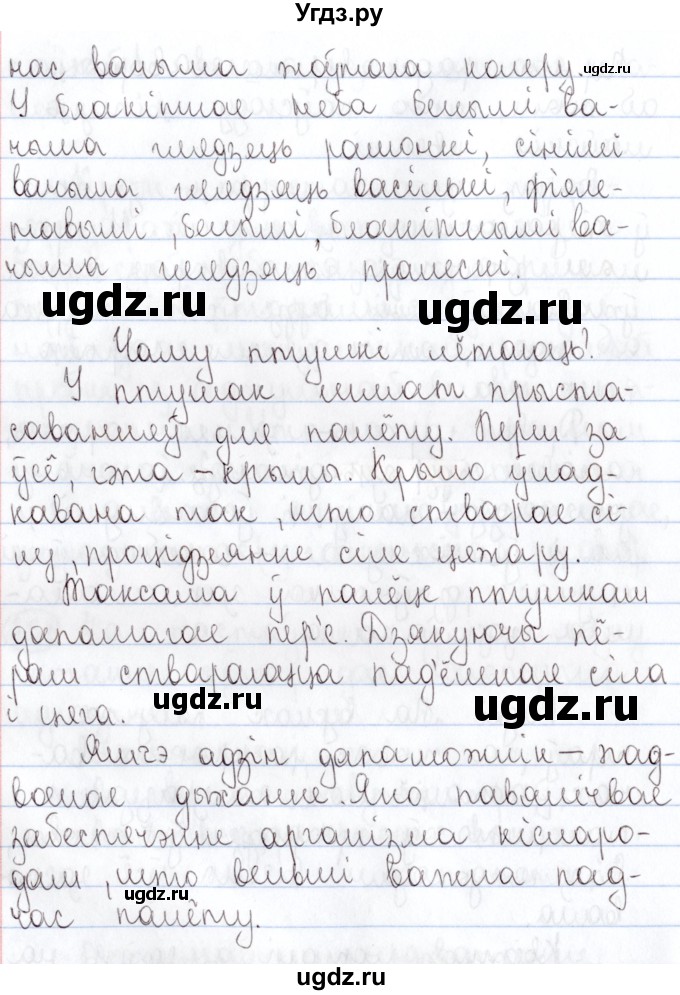 Угдз.ру
нас вачыма жоўтага колеру.
ugdz.ru
У блакітнае неба белымі ва-
чыма глядзяць рамонкі, сінімі
вачыма глядзяць васількі, фіяле-
тавымі, белымі, блакітнымі ва-
чыма глядзяць пралескі.
ugdz.ru
ugdz.ru
Чаму птушкі лётаюць?
У птушак шмат прыста-
саванняў для палёту. Перш за
ўсё, гэта – крылы. Крыло ўлад-
кавана так, што стварае сі-
лу, процідзеянне сіле цяжару.
Таксама ў палёце птушкам
дапамагае пер'е. Дзякуючы пё-
рам ствараюцца пад'ёмная сіла
і цяга.
ugdz.ru
ugdz.ru
Яшчэ адзін дапаможнік – пад-
войнае дыханне. Яно павялічвае
забеспячэнне арганізма кісларо-
дам, што вельмі важна пад-
ugdz.ru
час палёту.
ugdz.ru